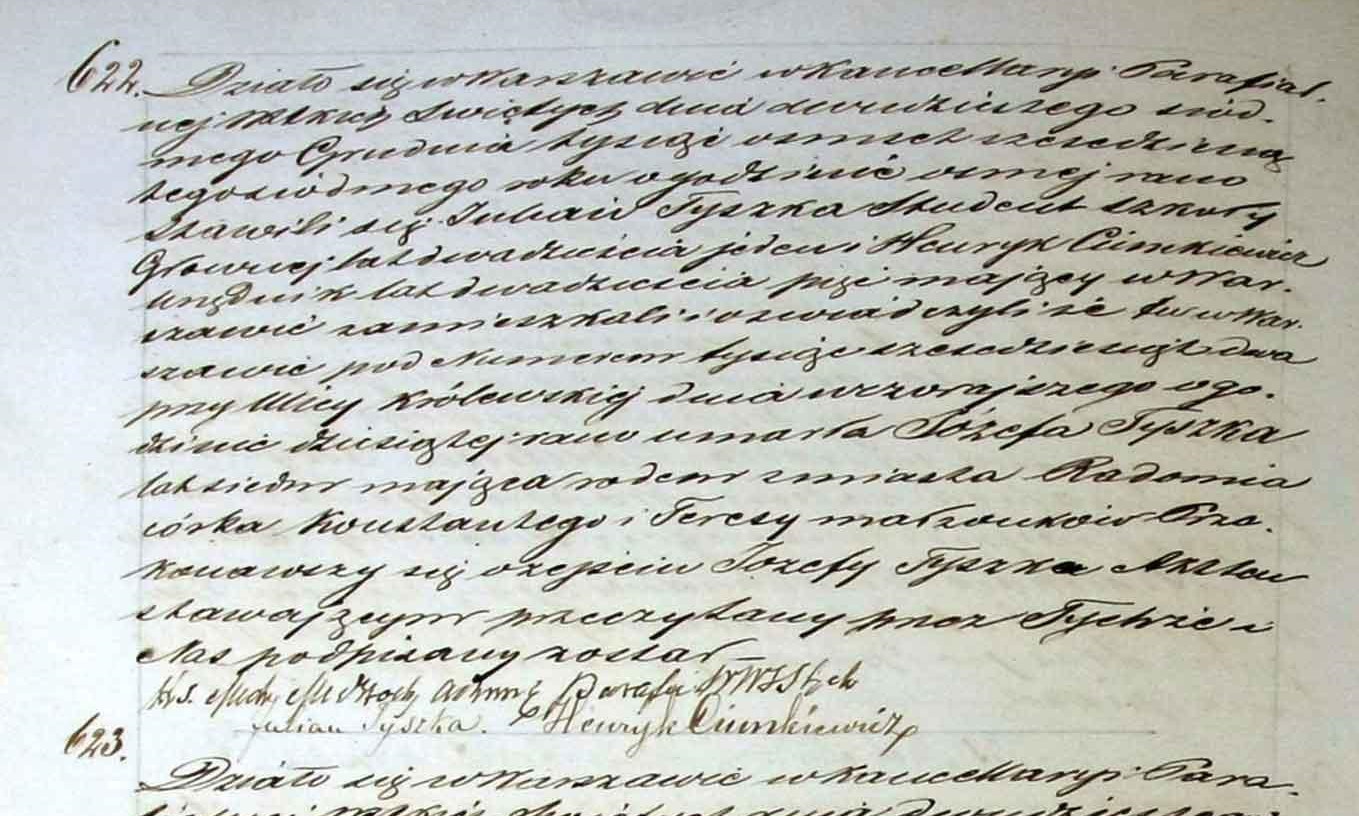 622. Działo się w Warszawie w Kancellaryi Parafial-
nej Wszkich Świętych dnia dwudziestego siód-
mego Grudnia tysiąc ośmset sześćdziesią
tego siódmego roku o godzinie ósmej rano
Stawili się Julian Tyszka Student Szkoły
Głównej lat dwadzieścia jeden i Henryk Ciunkiewicz
urzędnik lat dwadzieścia pięć mający w War-
szawie zamieszkali i oświadczyli że tu w War-
szawie pod Numerem tysiąc sześćdziesiąt dwa
przy Ulicy Królewskiej dnia wczorajszego o go-
dzinie dziesiątej rano umarła Józefa Tyszka
lat siedm mająca rodem z miasta Radomia
córka Konstantego i Teresy małżonków Prze-
konawszy się o zejściu Józefy Tyszka Akt ten
stawającym przeczytany przez Tychże i
Nas podpisany został
Ks. Parafii WWSStych
Julian Tyszka. Henryk Ciunkiewicz
623.
Działo się w Warszawie w Kancellaryi Para-
Świętych dnia dwudziestego